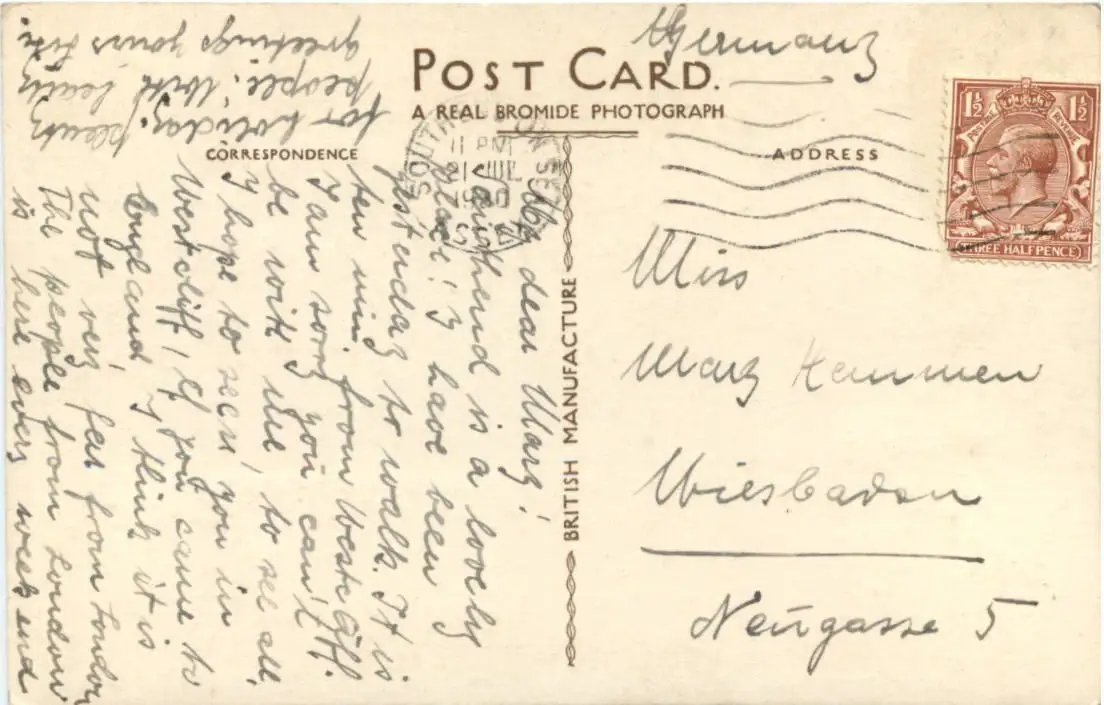 Germany
POST CARD.
A REAL BROMIDE PHOTOGRAPH
CORRESPONDENCE
ADDRESS
BRITISH MANUFACTURE
SOUTH ON SEA
11 PM
21 JUL
1930
1½ 1½
POSTAGE REVENUE
THREE HALFPENCE
My dear Mary!
Southend is a lovely
place! I have been
yesterday to walk. It is
ten min. from Westcliff.
I am sorry you can't
be with me, to see all.
I hope to seen you in
Westcliff, if you came to
England, I think it is
not very far from London
The people from London
is here every week end
for holiday. plenty
people. With
greetings yours
Miss
Mary Hemmen
Wiesbaden
Neugasse 5